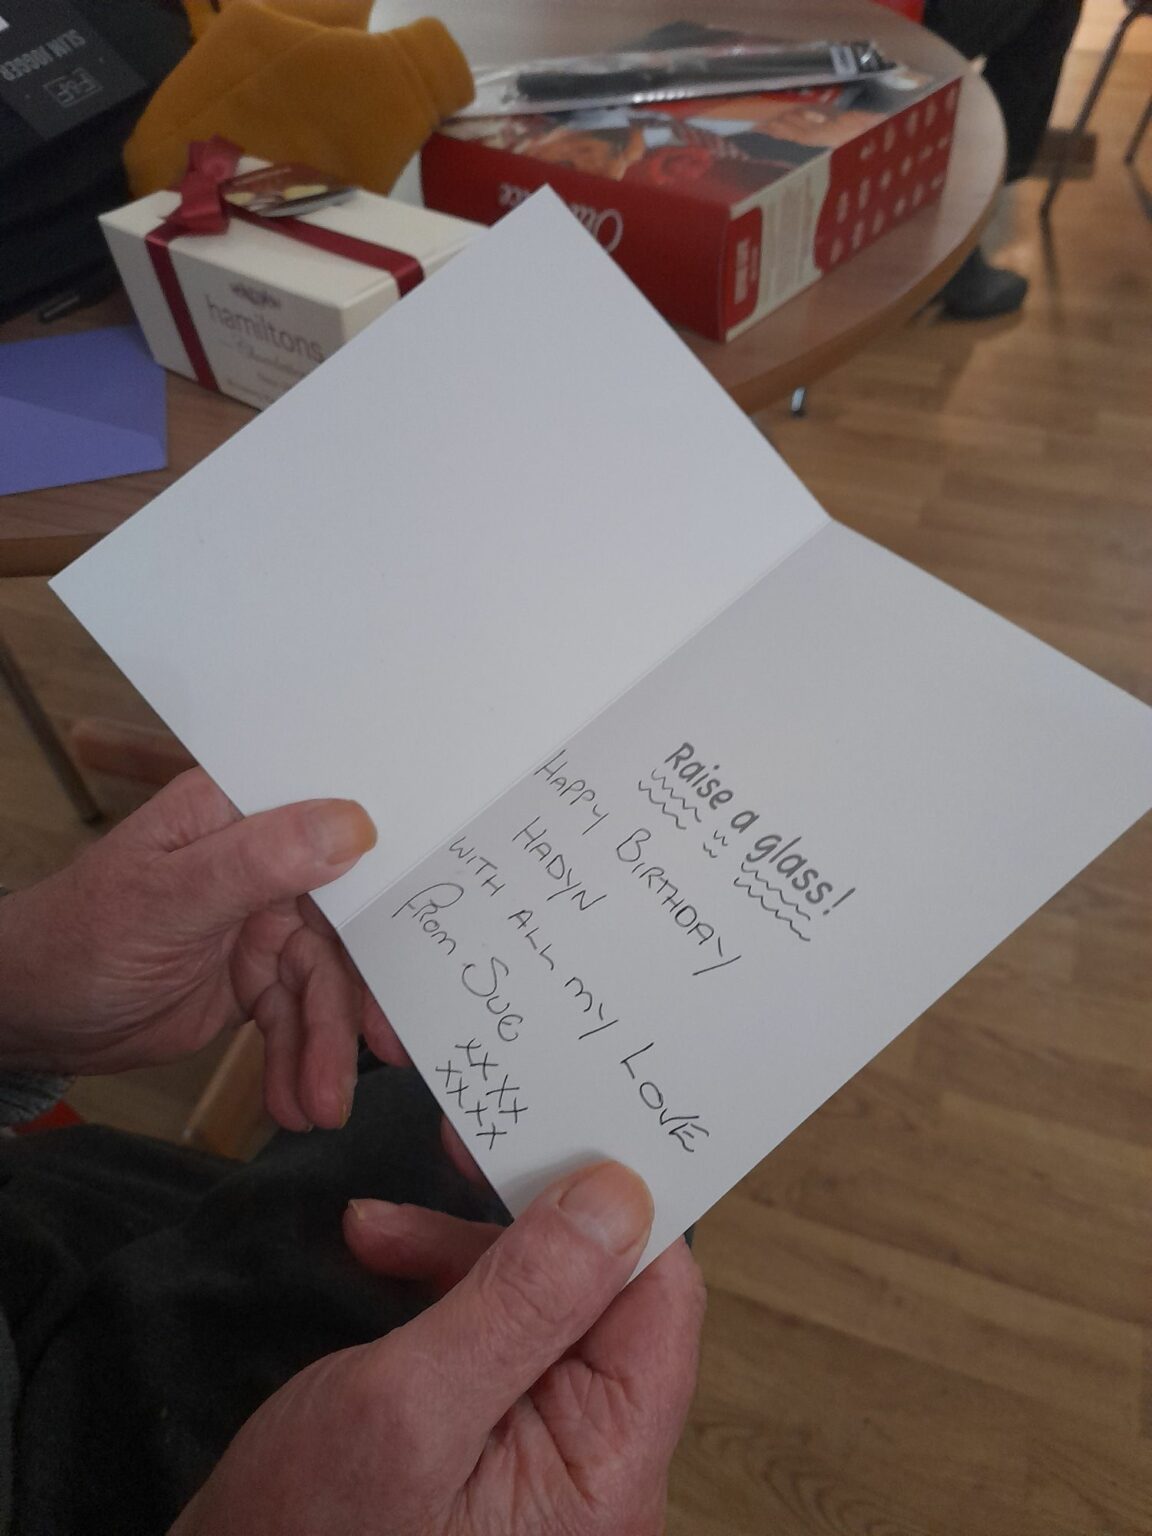 F&F
SLIM JOGGER
hamiltons
Raise a glass!
HAPPY BIRTHDAY
HADYN
WITH ALL MY LOVE
FROM SUE
XXXX
XXXX